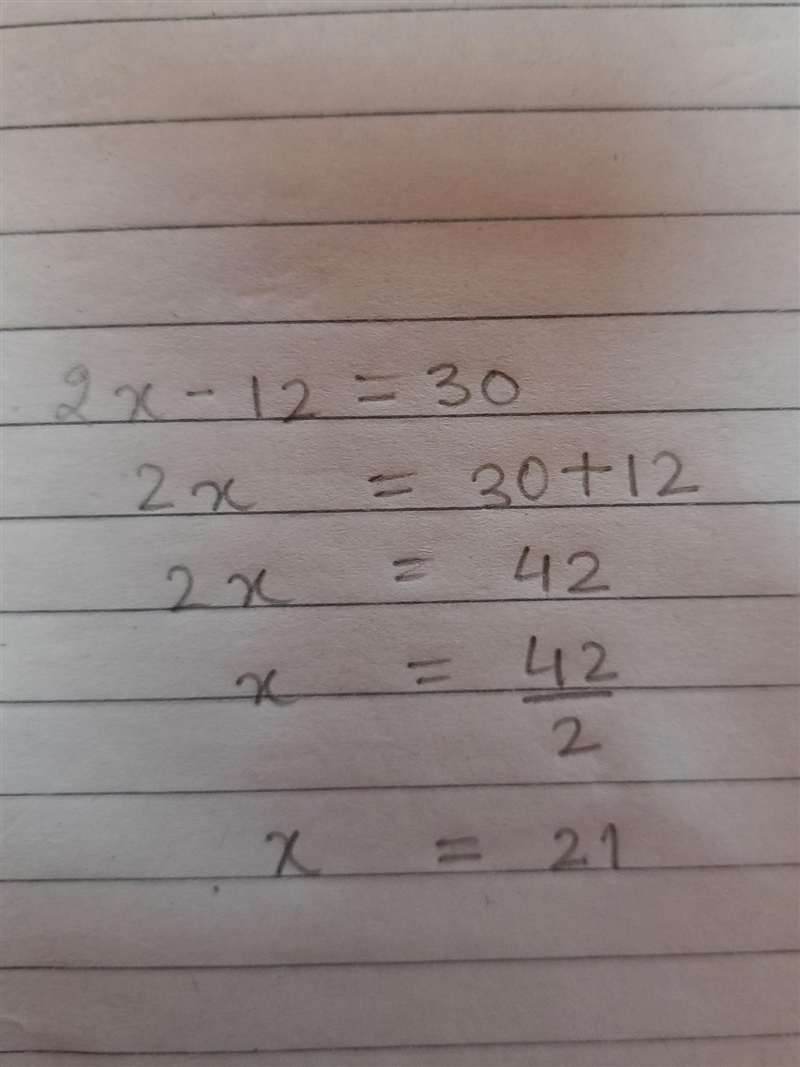 2x - 12 = 30
2x = 30 + 12
2x = 42
x = 42/2
x = 21